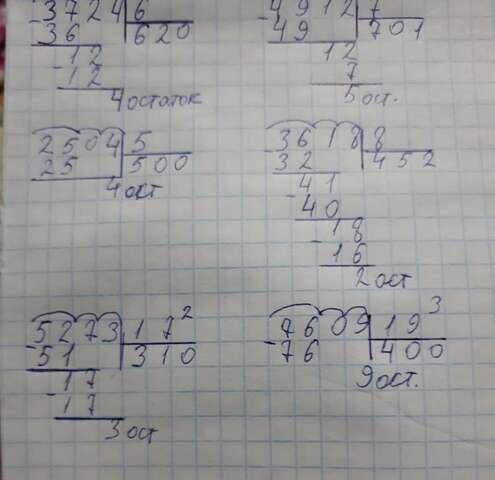 3724 | 6
36 | 620
-12
12
4 остаток
4912 | 7
49 | 701
12
7
5 ост.
2504 | 5
25 | 500
4 ост
-3618 | 8
32 | 452
-41
40
-18
16
2 ост
-5273 | 17 2
51 | 310
-17
17
3 ост
-7609 | 19 3
76 | 400
9 ост.